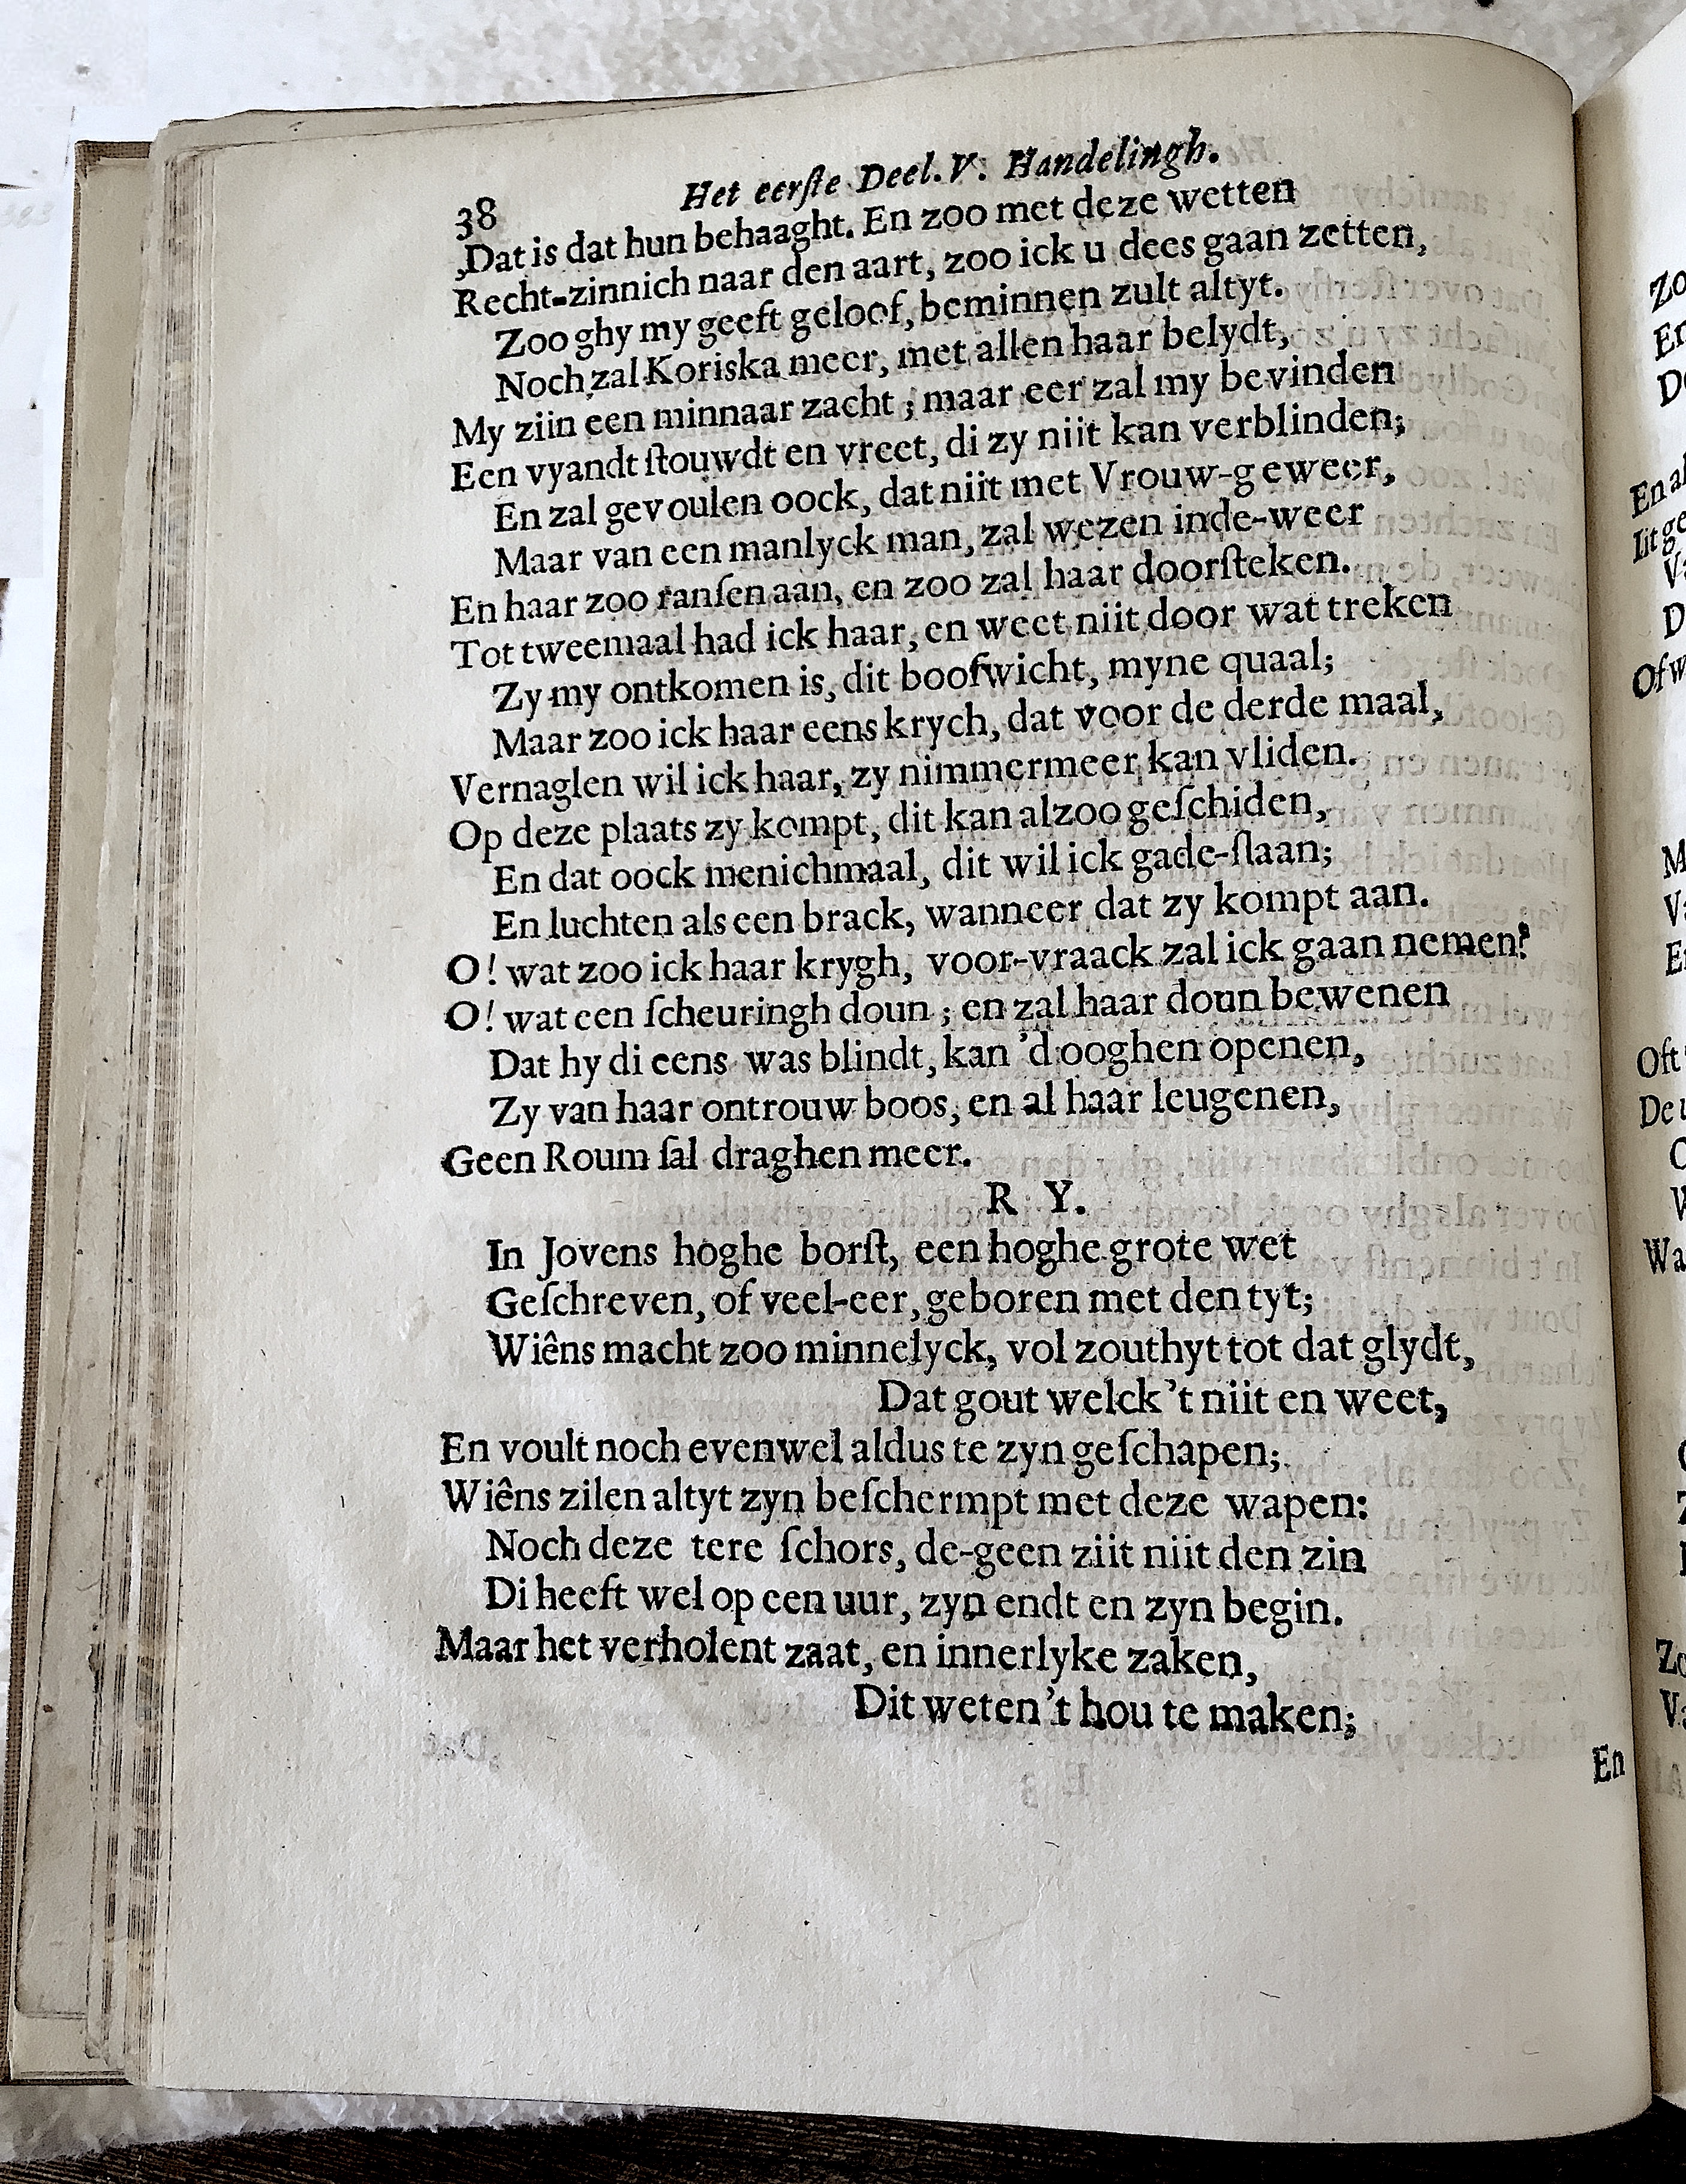 38 Het eerſte Deel. V. Handelingh.
,Dat is dat hun behaaght. En zoo met deze wetten
Recht-zinnich naar den aart, zoo ick u dees gaan zetten,
Zoo ghy my geeft geloof, beminnen zult altyt.
Noch zal Koriska meer, met allen haar belydt,
My ziin een minnaar zacht ; maar eer zal my bevinden
Een vyandt ſtouwdt en vreet, di zy niit kan verblinden;
En zal gevoulen oock, dat niit met Vrouw-geweer,
Maar van een manlyck man, zal wezen inde-weer
En haar zoo ranſen aan, en zoo zal haar doorſteken.
Tot tweemaal had ick haar, en weet niit door wat treken
Zy my ontkomen is, dit boofwicht, myne quaal;
Maar zoo ick haar eens krych, dat voor de derde maal,
Vernaglen wil ick haar, zy nimmermeer kan vliden.
Op deze plaats zy kompt, dit kan alzoo geſchiden,
En dat oock menichmaal, dit wil ick gade-ſlaan;
En luchten als een brack, wanneer dat zy kompt aan.
O! wat zoo ick haar krygh, voor-vraack zal ick gaan nemen?
O! wat een ſcheuringh doun ; en zal haar doun bewenen
Dat hy di eens was blindt, kan 'd ooghen openen,
Zy van haar ontrouw boos, en al haar leugenen,
Geen Roum ſal draghen meer.
R Y.
In Jovens hoghe borſt, een hoghe grote wet
Geſchreven, of veel-eer, geboren met den tyt;
Wiêns macht zoo minnelyck, vol zouthyt tot dat glydt,
Dat gout welck 't niit en weet,
En voult noch evenwel aldus te zyn geſchapen;
Wiêns zilen altyt zyn beſchermpt met deze wapen:
Noch deze tere ſchors, de-geen ziit niit den zin
Di heeft wel op een uur, zyn endt en zyn begin.
Maar het verholent zaat, en innerlyke zaken,
Dit weten 't hou te maken;
En